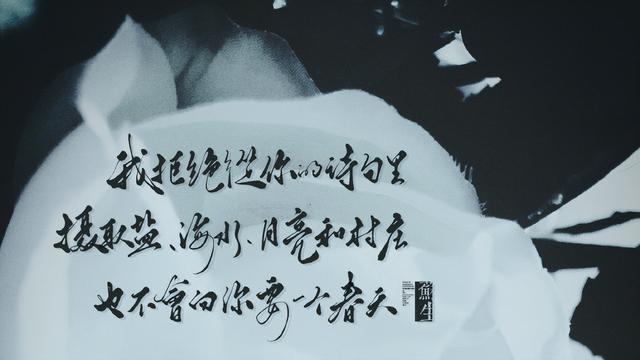 我拒绝從你的诗句里
摄取盐、海水、月亮和村庄
也不會向你要一个春天